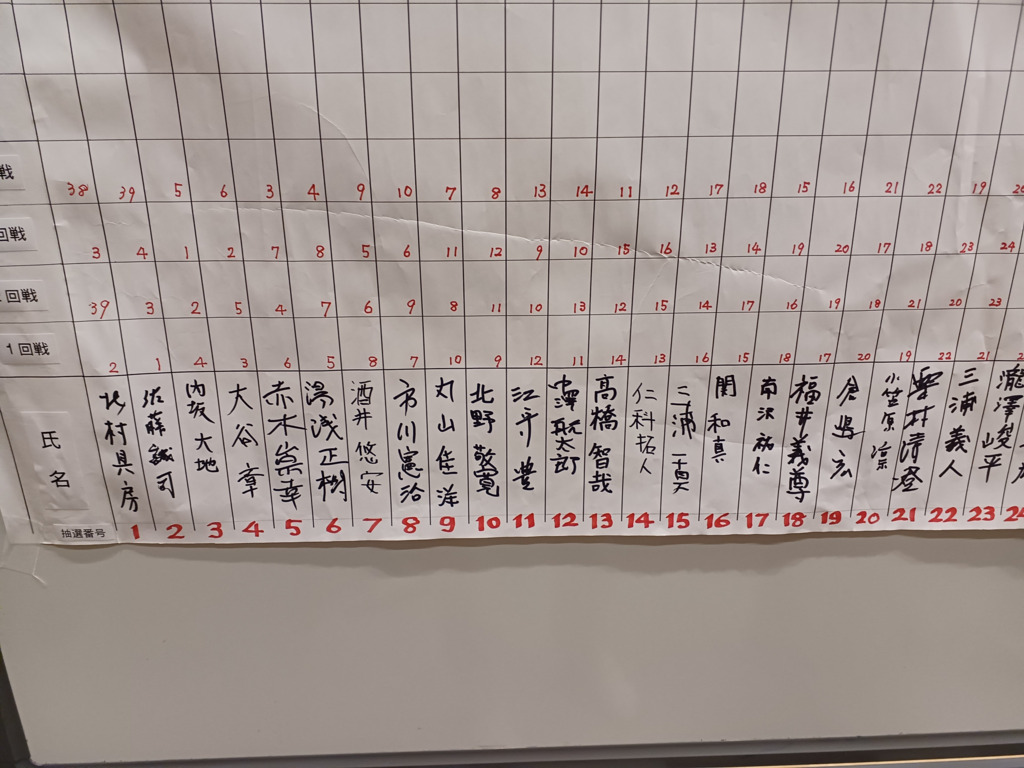 戦 38 39 5 6 3 4 9 10 7 8 13 14 11 12 17 18 15 16 21 22 19 20
回戦 3 4 1 2 7 8 5 6 11 12 9 10 15 16 13 14 19 20 17 18 23 24
回戦 39 3 2 5 4 7 6 9 8 11 10 13 12 15 14 17 16 19 18 21 20 23
1回戦 2 1 4 3 6 5 8 7 10 9 12 11 14 13 16 15 18 17 20 19 22 21
氏名
北村具房
佐藤誠司
内坂大地
大谷章
赤木崇幸
湯浅正樹
酒井悠安
市川憲治
丸山佳洋
北野敬寛
江守豊
中澤耿太郎
高橋智哉
仁科拓人
三浦
関和真
南沢祐仁
福井義尊
倉嶋宏
小笠原涼
雲村清澄
三浦義人
瀧澤峻平
抽選番号 1 2 3 4 5 6 7 8 9 10 11 12 13 14 15 16 17 18 19 20 21 22 23 24